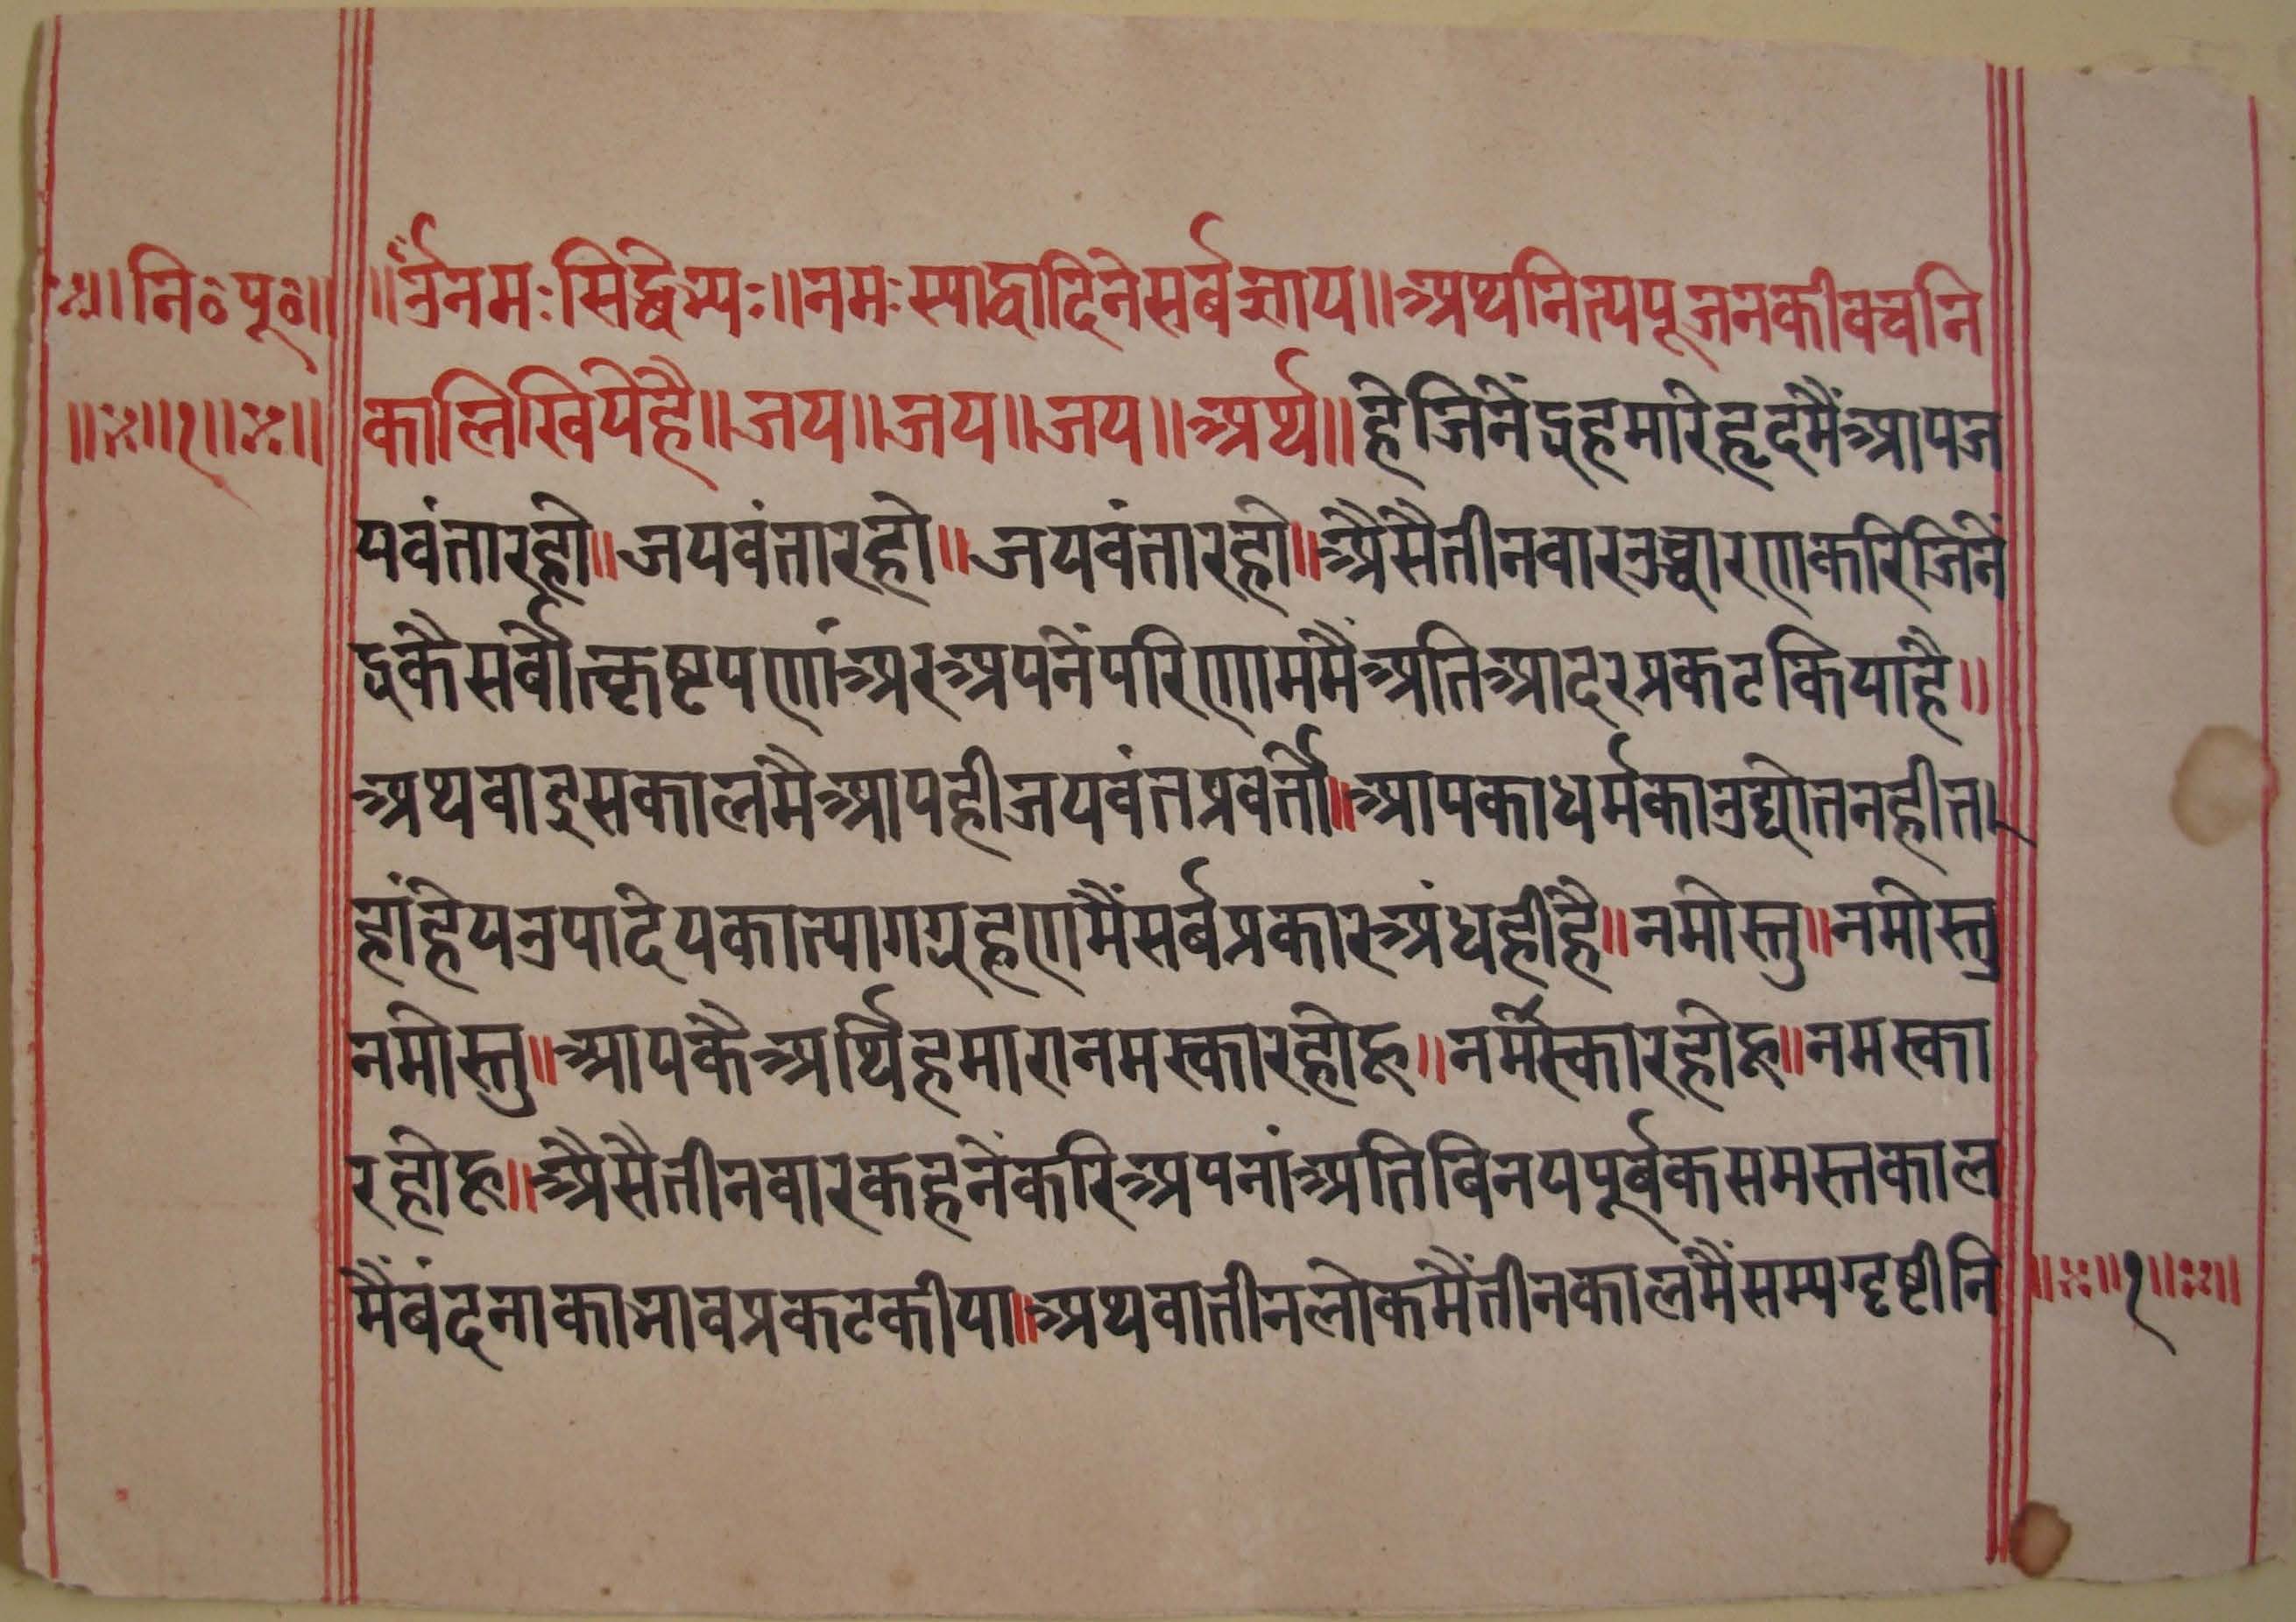 ॥ नि॰ पू॰ ॥
॥ १ ॥
॥ ॐनमःसिद्धेभ्यः॥नमःस्याद्वादिनेसर्बज्ञाय॥अथनित्यपूजनकीवचनि
कालिखियेहै॥जय॥जय॥जय॥अर्थ॥हेजिनेंद्रहमारेहृदमैंआपज
यवंतारहो॥जयवंतारहो॥जयवंतारहो॥अैसैतीनवारउच्चारणकरिजिनें
द्रकैसर्वोत्कृष्टपणांअरअपनेंपरिणाममैंअतिआदरप्रकटकियाहै॥
अथवाइसकालमैआपहीजयवंतप्रवर्तो॥आपकाधर्मकाउद्योतनहीत
हांहेयउपादेयकात्यागग्रहणमैंसर्बप्रकारअंधहीहै॥नमोस्तु॥नमोस्तु
नमोस्तु॥आपकैअर्थिहमारानमस्कारहोहू॥नमस्कारहोहू॥नमस्का
रहोहू॥अैसैतीनवारकहनेंकरिअपनांअतिबिनयपूर्बकसमस्तकाल
मैंबंदनाकाभावप्रकटकीया॥अथवातीनलोकमैंतीनकालमैंसम्यग्दृष्टीनि
॥ १ ॥